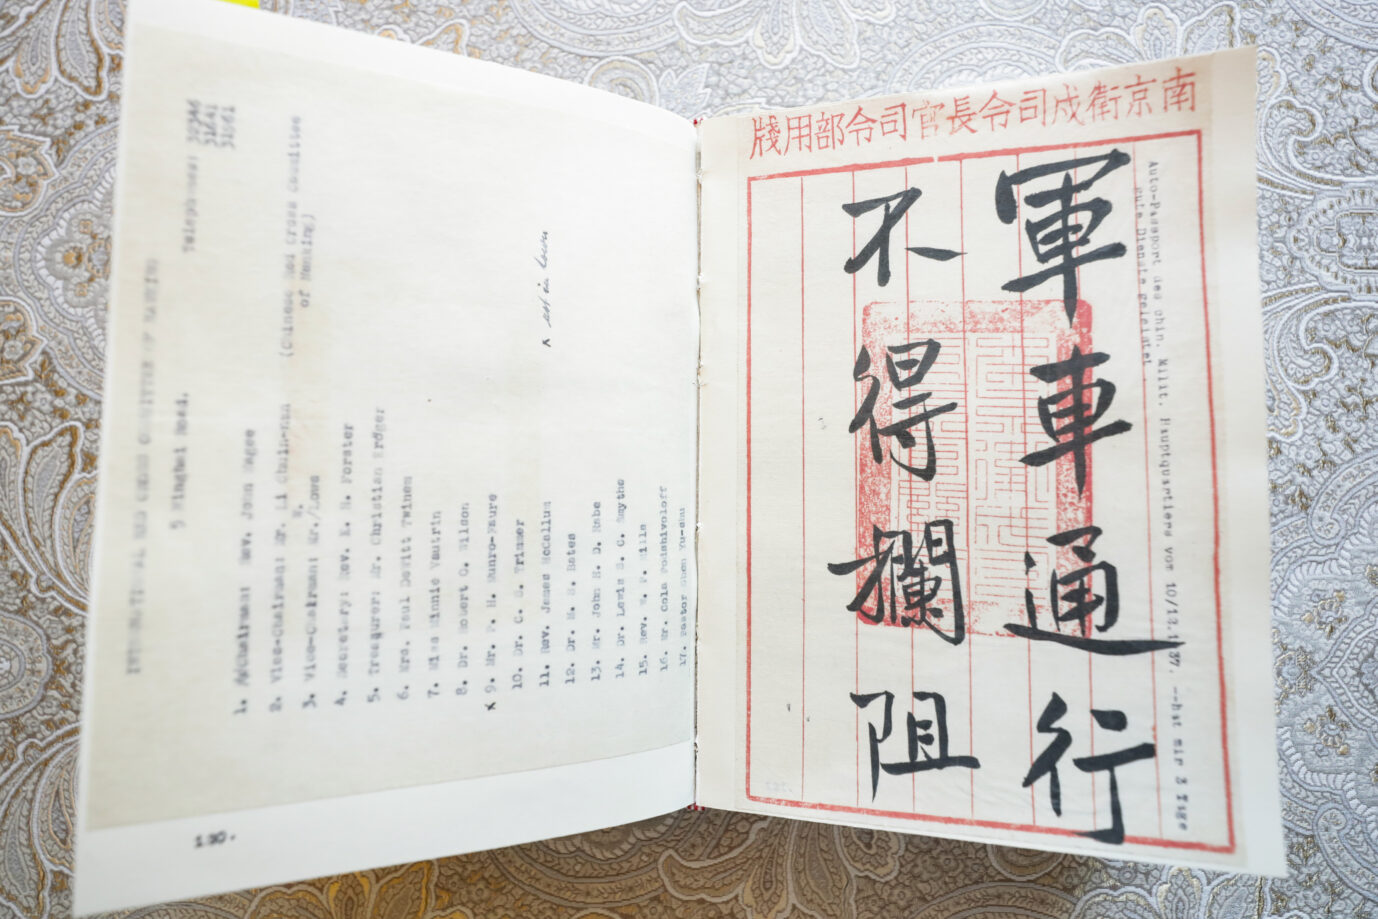 INTERNATIONAL RED CROSS COMMITTEE OF NANKING
5 Ninghai Road.
Telephones: 30346
31641
31961
1. Chairman: Rev. John Magee
2. Vice-Chairman: Mr. Li Chuin-nan (Chinese Red Cross Committee
of Nanking)
3. Vice-Chairman: Mr./Lowe
W.
4. Secretary: Rev. E. H. Forster
5. Treasurer: Mr. Christian Kröger
6. Mrs. Paul DeWitt Twinem
7. Miss Minnie Vautrin
8. Dr. Robert O. Wilson
x 9. Mr. P. H. Munro-Faure
10. Dr. C. S. Trimmer
11. Rev. James McCallum
12. Dr. M. S. Bates
13. Mr. John H. D. Rabe
14. Dr. Lewis S. C. Smythe
15. Rev. W. P. Mills
16. Mr. Cola Podshivoloff
17. Pastor Shen Yu-shu
x not in town
130.
南京衛戍司令長官司令部用牋
軍車通行
不得攔阻
Auto-Passport des chin. Milit. Hauptquartiers vom 10/12.1937. --hat mir 3 Tage
gute Dienste geleistet